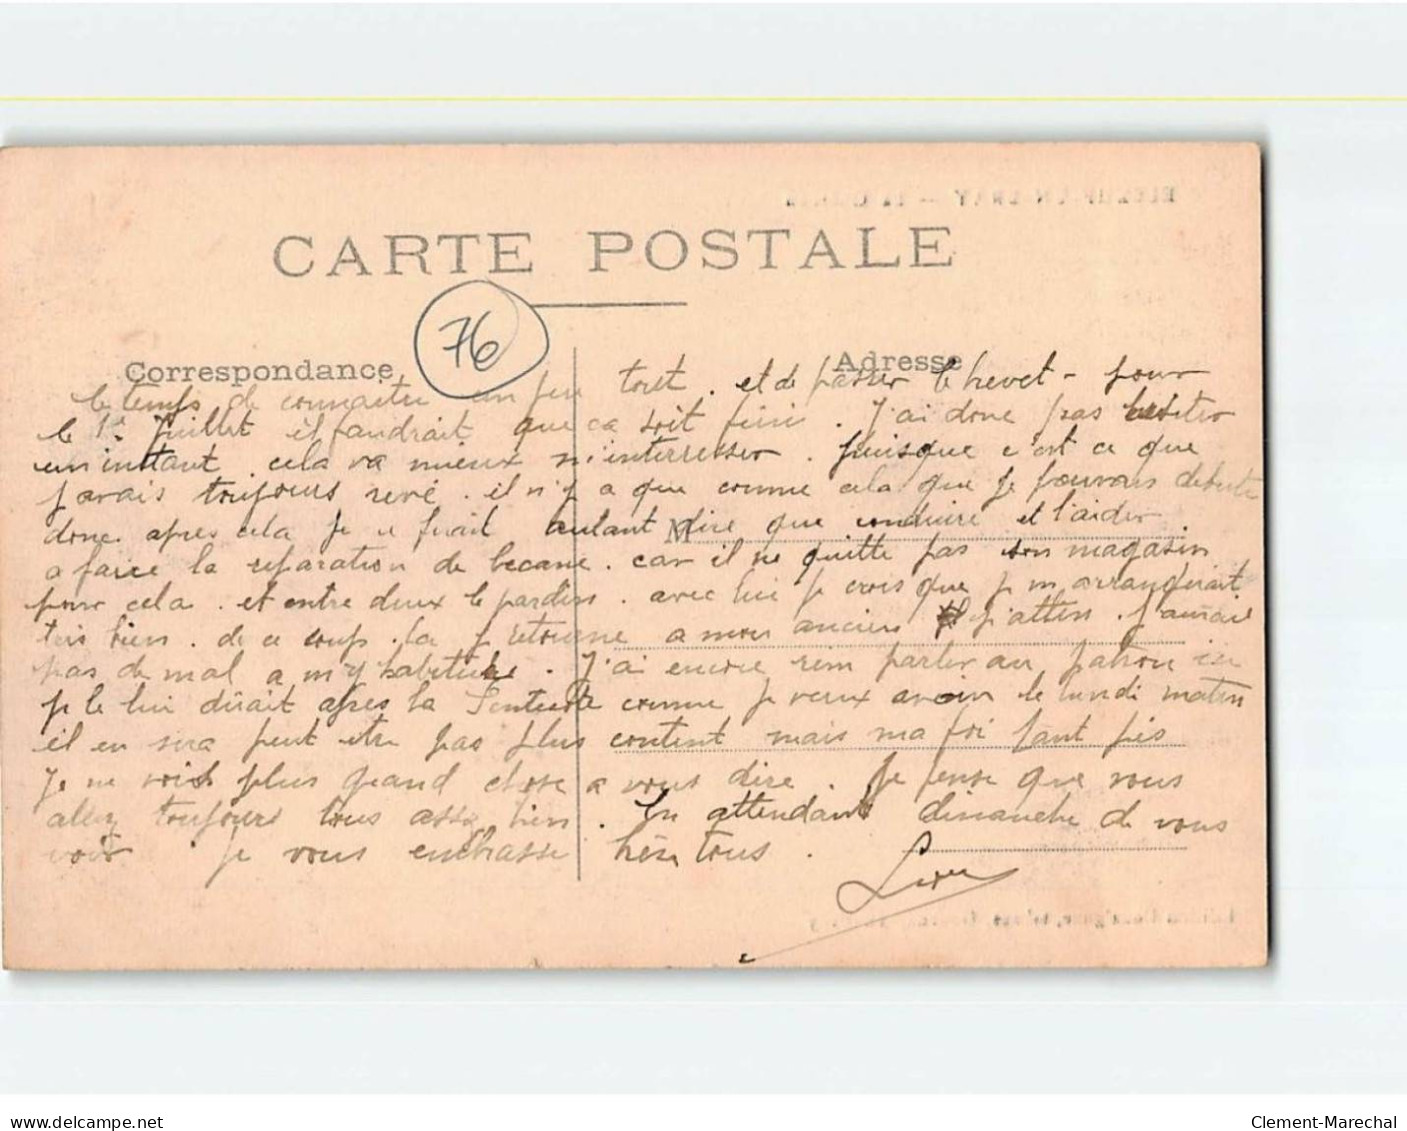 CARTE POSTALE
76
Correspondance
Adresse
le temps de connaitre un peu tout. et de passer le brevet - pour
le 1er Juillet il faudrait que ca soit fini. J'ai donc pas hesiter
un instant. cela va mieux m'interresser. puisque c'est ce que
j'avais toujours revé. il n'y a que comme cela que je pouvais debuter
donc apres cela je autant dire que conduire et l'aider
M
a faire la reparation de becane. car il ne quitte pas son magasin
pour cela. et entre deux le jardin. avec lui je crois que je m'arrangerait
tres bien. de ce coup la je retourne a mon ancien j'aurai
pas de mal a m'y habituer. J'ai encore rien parler au patron ici
je le lui dirait apres la Pentecote comme je veux avoir le lundi matin
il en sera peut etre pas plus content mais ma foi tant pis
Je ne vois plus grand chose a vous dire. Je pense que vous
allez toujours tous assez bien. En attendant dimanche de vous
voir je vous embrasse bien tous.
Clement-Marechal